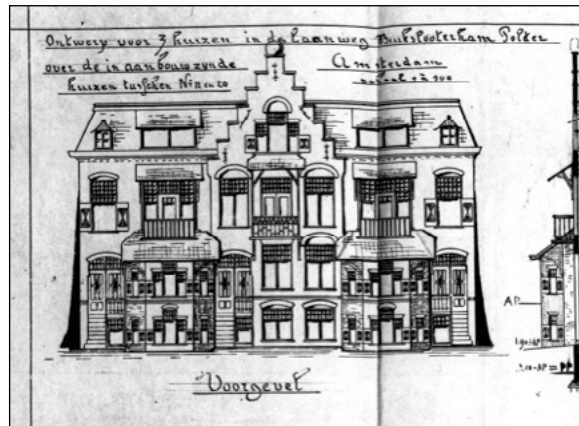 Ontwerp voor 3 huizen in de Laanweg Buiksloterham Polder
over de in aanbouw zynde Amsterdam
huizen tusschen schaal 1 à 100
AP
1.90-AP
3.10-AP =
Voorgevel